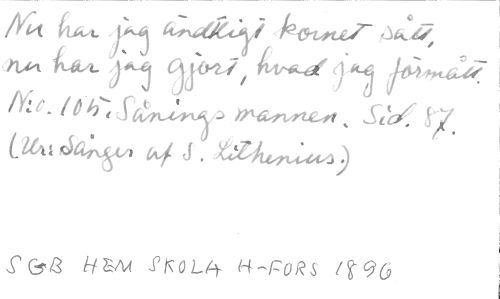 Nu har jag ändtligt kornet sått,
nu har jag gjort, hvad jag förmått.
N:o. 105. Sånings mannen. Sid. 87.
(Ur: Sånger af S. Lithenius.)
SGB HEM SKOLA H-FORS 1896